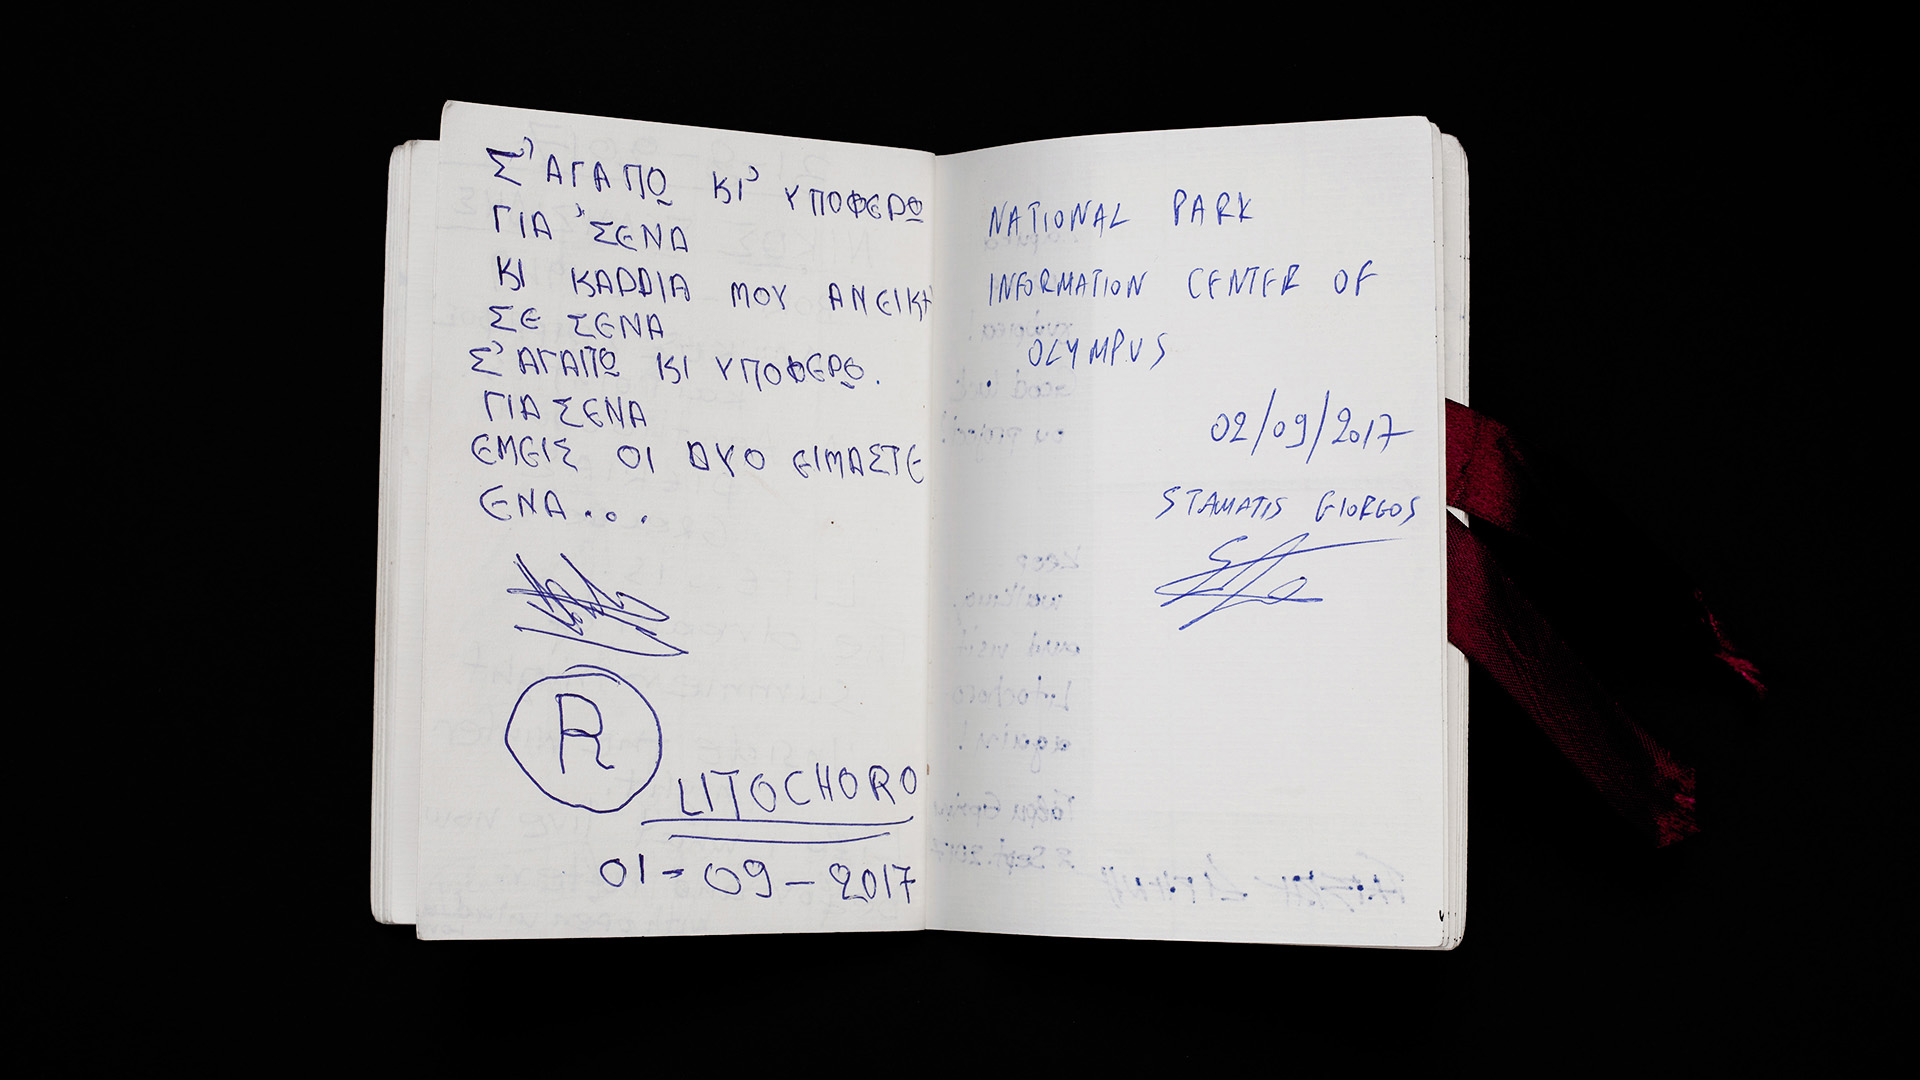 Σ' ΑΓΑΠΩ ΚΙ' ΥΠΟΦΕΡΩ
ΓΙΑ 'ΣΕΝΑ
ΚΙ ΚΑΡΔΙΑ ΜΟΥ ΑΝΕΙΚΗ
ΣΕ ΣΕΝΑ
Σ' ΑΓΑΠΩ ΚΙ ΥΠΟΦΕΡΩ.
ΓΙΑ ΣΕΝΑ
ΕΜΕΙΣ ΟΙ ΔΥΟ ΕΙΜΑΣΤΕ
ΕΝΑ...
R
LITOCHORO
01-09-2017
NATIONAL PARK
INFORMATION CENTER OF
OLYMPUS
02/09/2017
STAMATIS GIORGOS